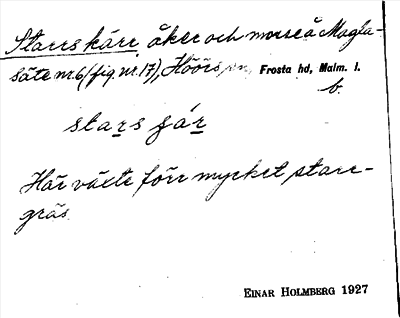 Starrs kärr åker och mosse å Magla-
säte nr 6 (fig. nr. 17), Höörs sn, Frosta hd, Malm. l.
b.
stars şár
Här växte förr mycket starr-
gräs.
EINAR HOLMBERG 1927